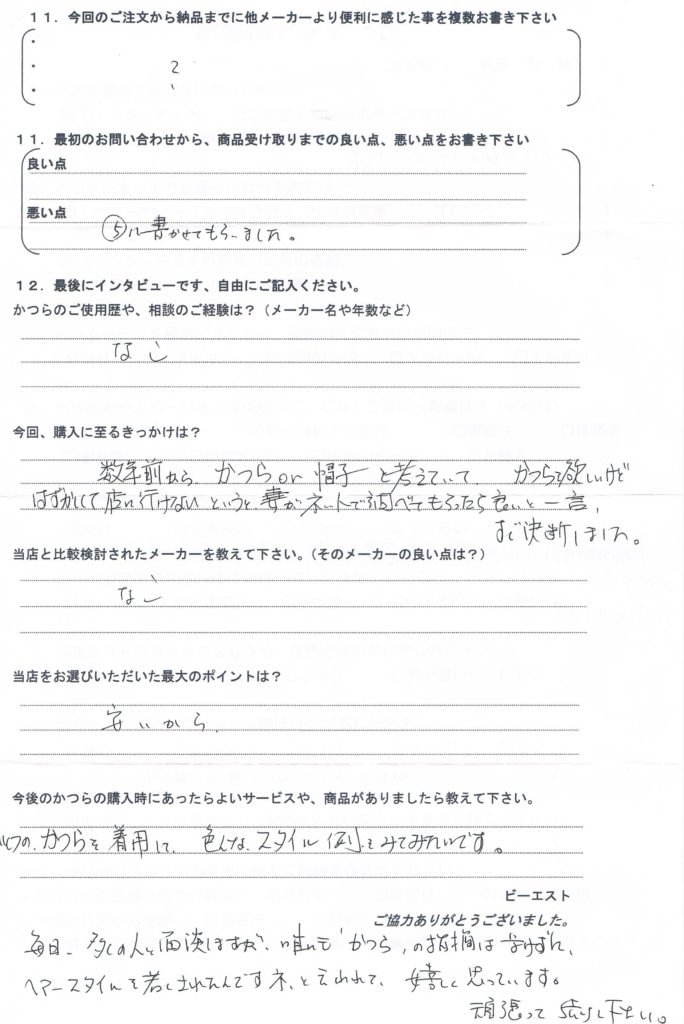 １１．今回のご注文から納品までに他メーカーより便利に感じた事を複数お書き下さい
・
・
・
１１．最初のお問い合わせから、商品受け取りまでの良い点、悪い点をお書き下さい
良い点
悪い点
⑤に書かせてもらいました。
１２．最後にインタビューです、自由にご記入ください。
かつらのご使用歴や、相談のご経験は？（メーカー名や年数など）
なし
今回、購入に至るきっかけは？
数年前から、かつらor帽子と考えていて、かつらを欲しいけど
はずかしくて店に行けないというと、妻がネットで調べてもらったら良いと一言、
すぐ決断しました。
当店と比較検討されたメーカーを教えて下さい。（そのメーカーの良い点は？）
なし
当店をお選びいただいた最大のポイントは？
安いから。
今後のかつらの購入時にあったらよいサービスや、商品がありましたら教えて下さい。
かつらを着用して、色んなスタイル例をみてみたいです。
ビーエスト
ご協力ありがとうございました。
毎日、多くの人と面談しますが、唯も「かつら」の指摘は受けずに、
ヘアースタイルを若くされたんですネ、と云われて、嬉しく思っています。
頑張って続けて下さい。